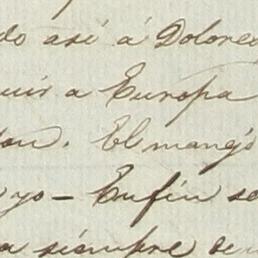 do así á Dolores
uir a Europa
El manejo
yo - Enfin se
a siempre de